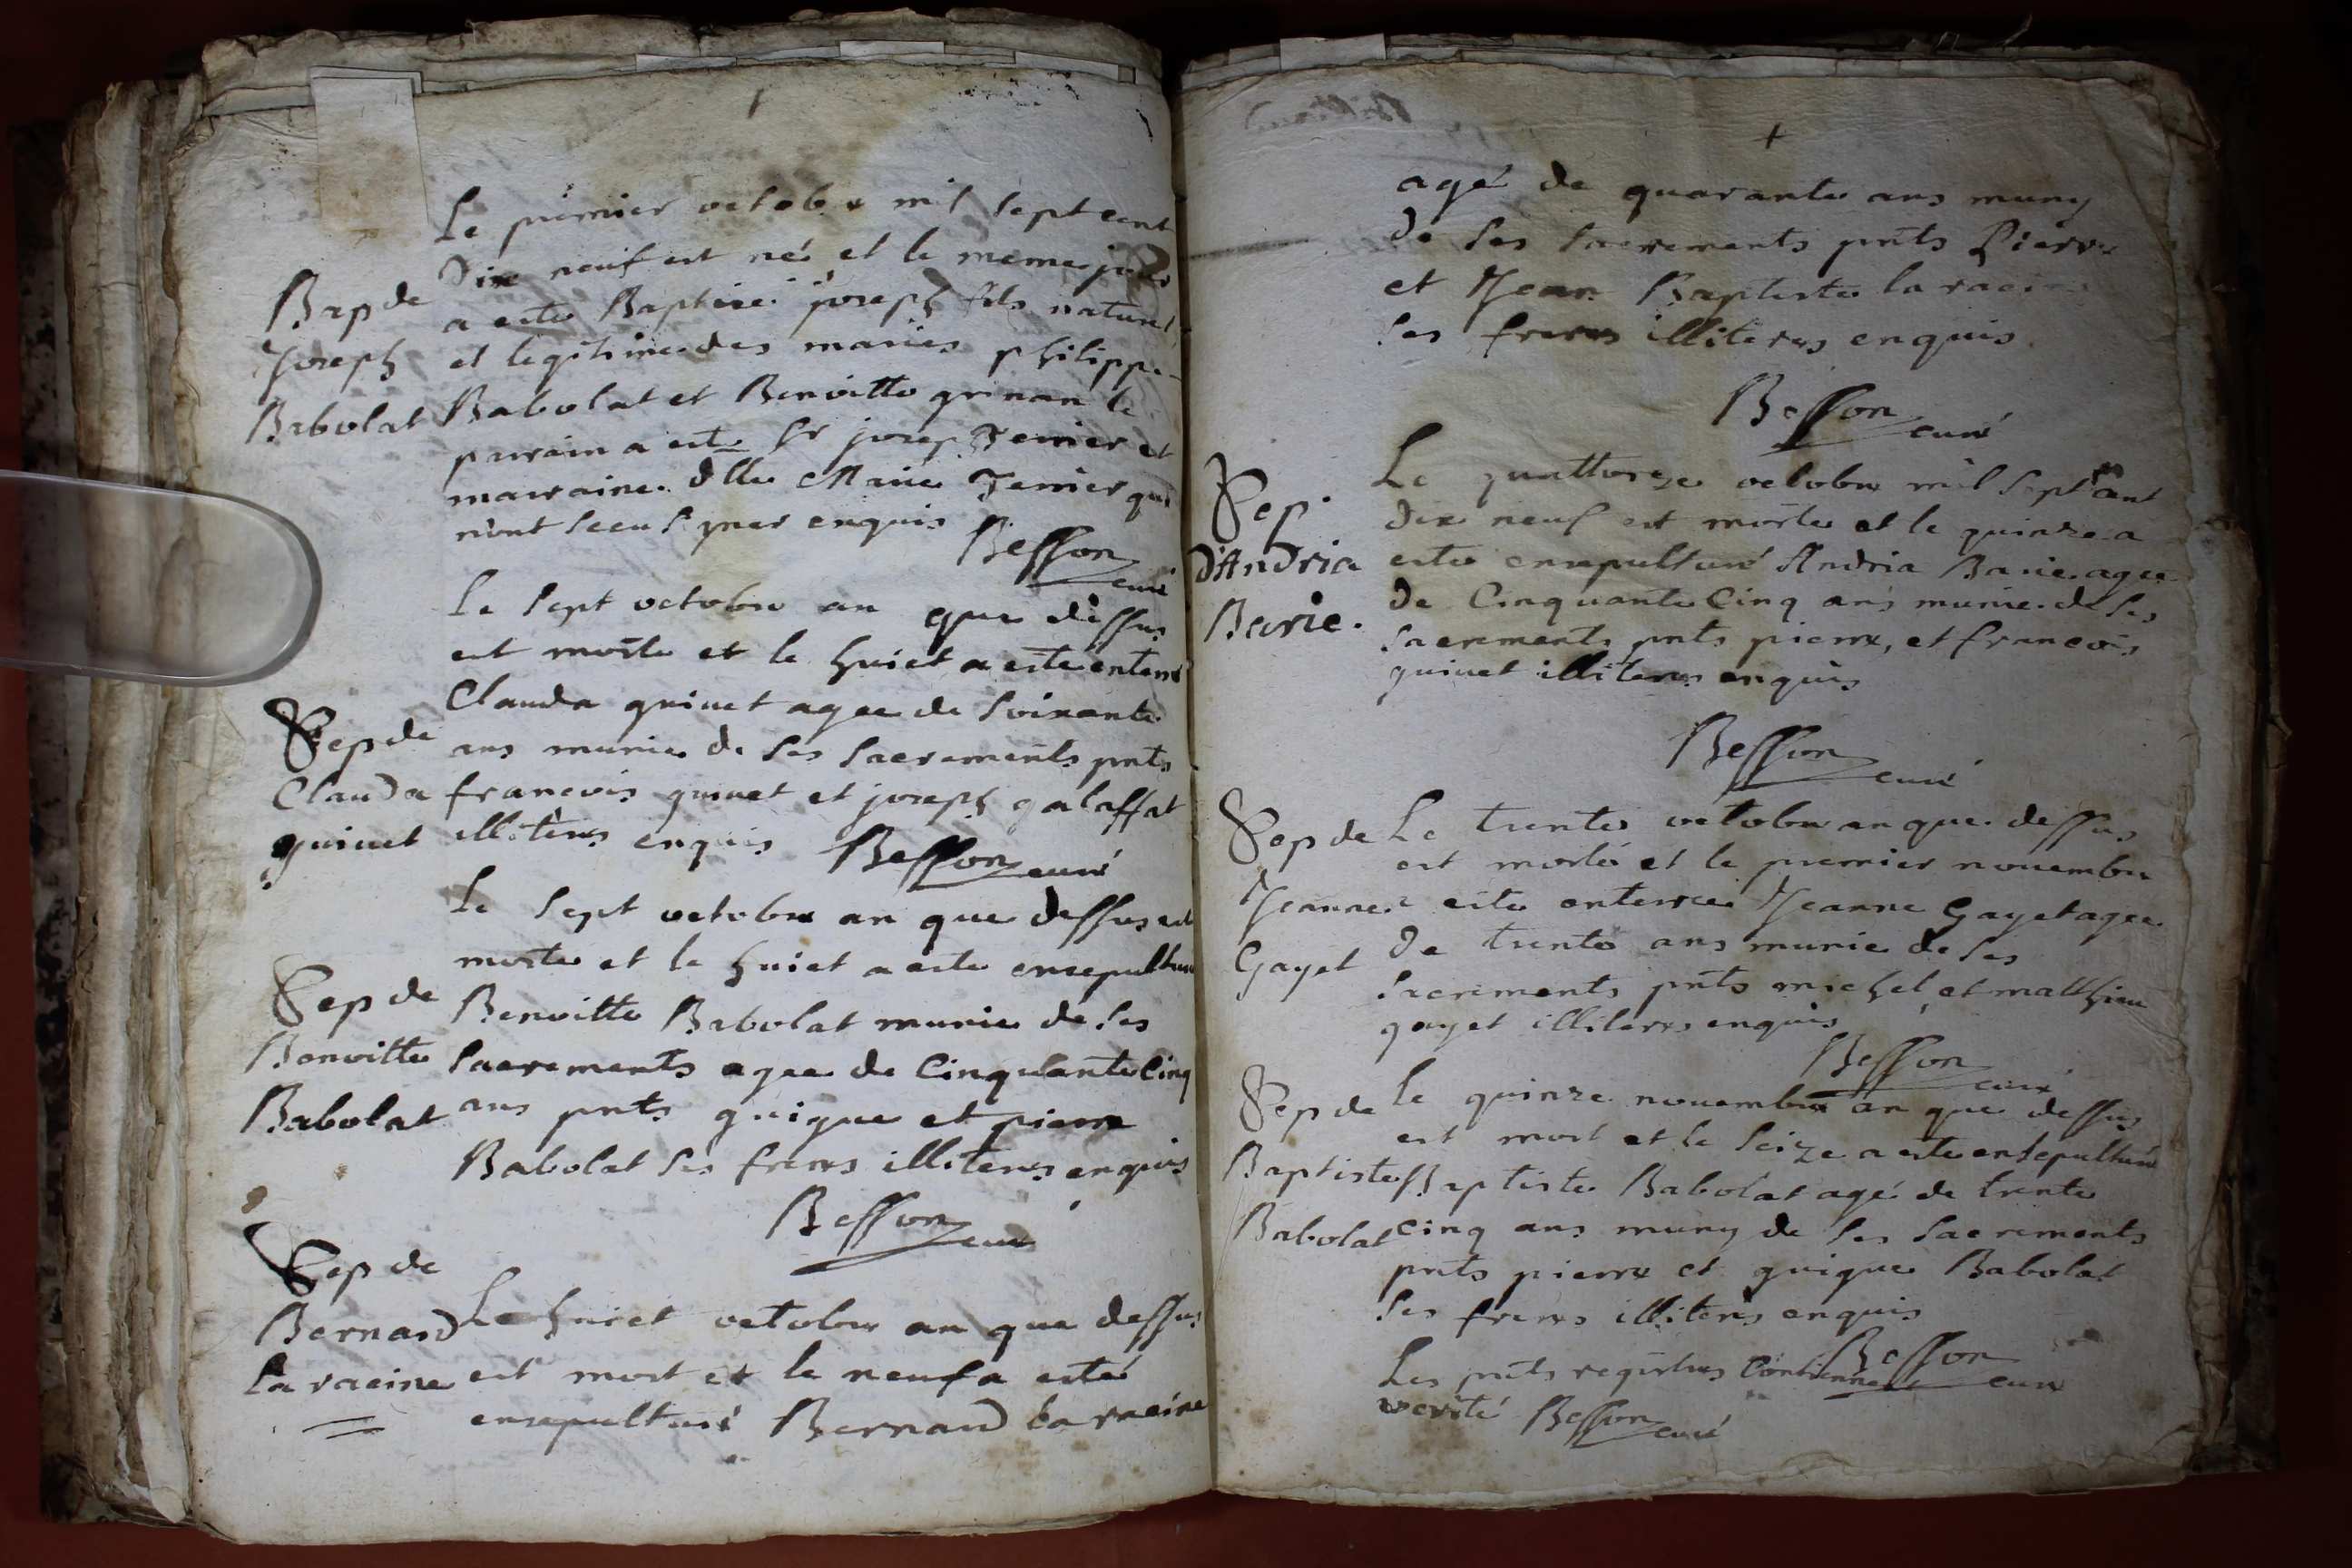 Bap de
Joseph
Babolat
Le premier octobre mil sept cent
dix neuf est né et le meme jour
a este Baptisé joseph fils naturel
et legitime des mariés philippe
Babolat et Benoitte grinan le
parrain a este sr josep Terrier et
marraine dlle Marie Terrier qui
n'ont sceu signer enquis
Besson curé
Sep de
Clauda
guinet
Le sept octobre an que dessus
est morte et le huict a este enterré
Clauda guinet agee de soixante
ans munie de ses sacrements pnts
francois guinet et joseph galaffat
illiteres enquis Besson curé
Sep de
Benoitte
Babolat
Le sept octobre an que dessus est
morte et le huict a este ensepulturé
Benoitte Babolat munie de ses
sacrements agee de Cinquante Cinq
ans pnts guigue et pierre
Babolat ses freres illiteres enquis
Besson curé
Sep de
Bernard
la racine
Le huict octobre an que dessus
est mort et le neuf a esté
ensepulturé Bernard la racine
agé de quarante ans muny
de ses sacrements pnts Pierre
et Jean Baptiste la racine
ses freres illiteres enquis
Besson curé
Sep
d'Andria
Barie.
Le quattorze octobre mil sept cent
dix neuf est morte et le quinze a
este ensepulturé Andria Barie agee
de Cinquante Cinq ans munie de ses
sacrements pnts pierre, et francois
guinet illiteres enquis
Besson curé
Sep de
Jeanne
Gayet
Le trente octobre an que dessus
est morte et le premier novembre
a este enterree Jeanne Gayet agee
de trente ans munie de ses
sacrements pnts michel et matthieu
gayet illiteres enquis
Besson curé
Sep de
Baptiste
Babolat
Le quinze novembre an que dessus
est mort et le seize a este ensepulturé
Baptiste Babolat agé de trente
cinq ans muny de ses sacrements
pnts pierre et guigue Babolat
ses freres illiteres enquis
Besson curé
Les pnts registres Contiennent
verité Besson curé